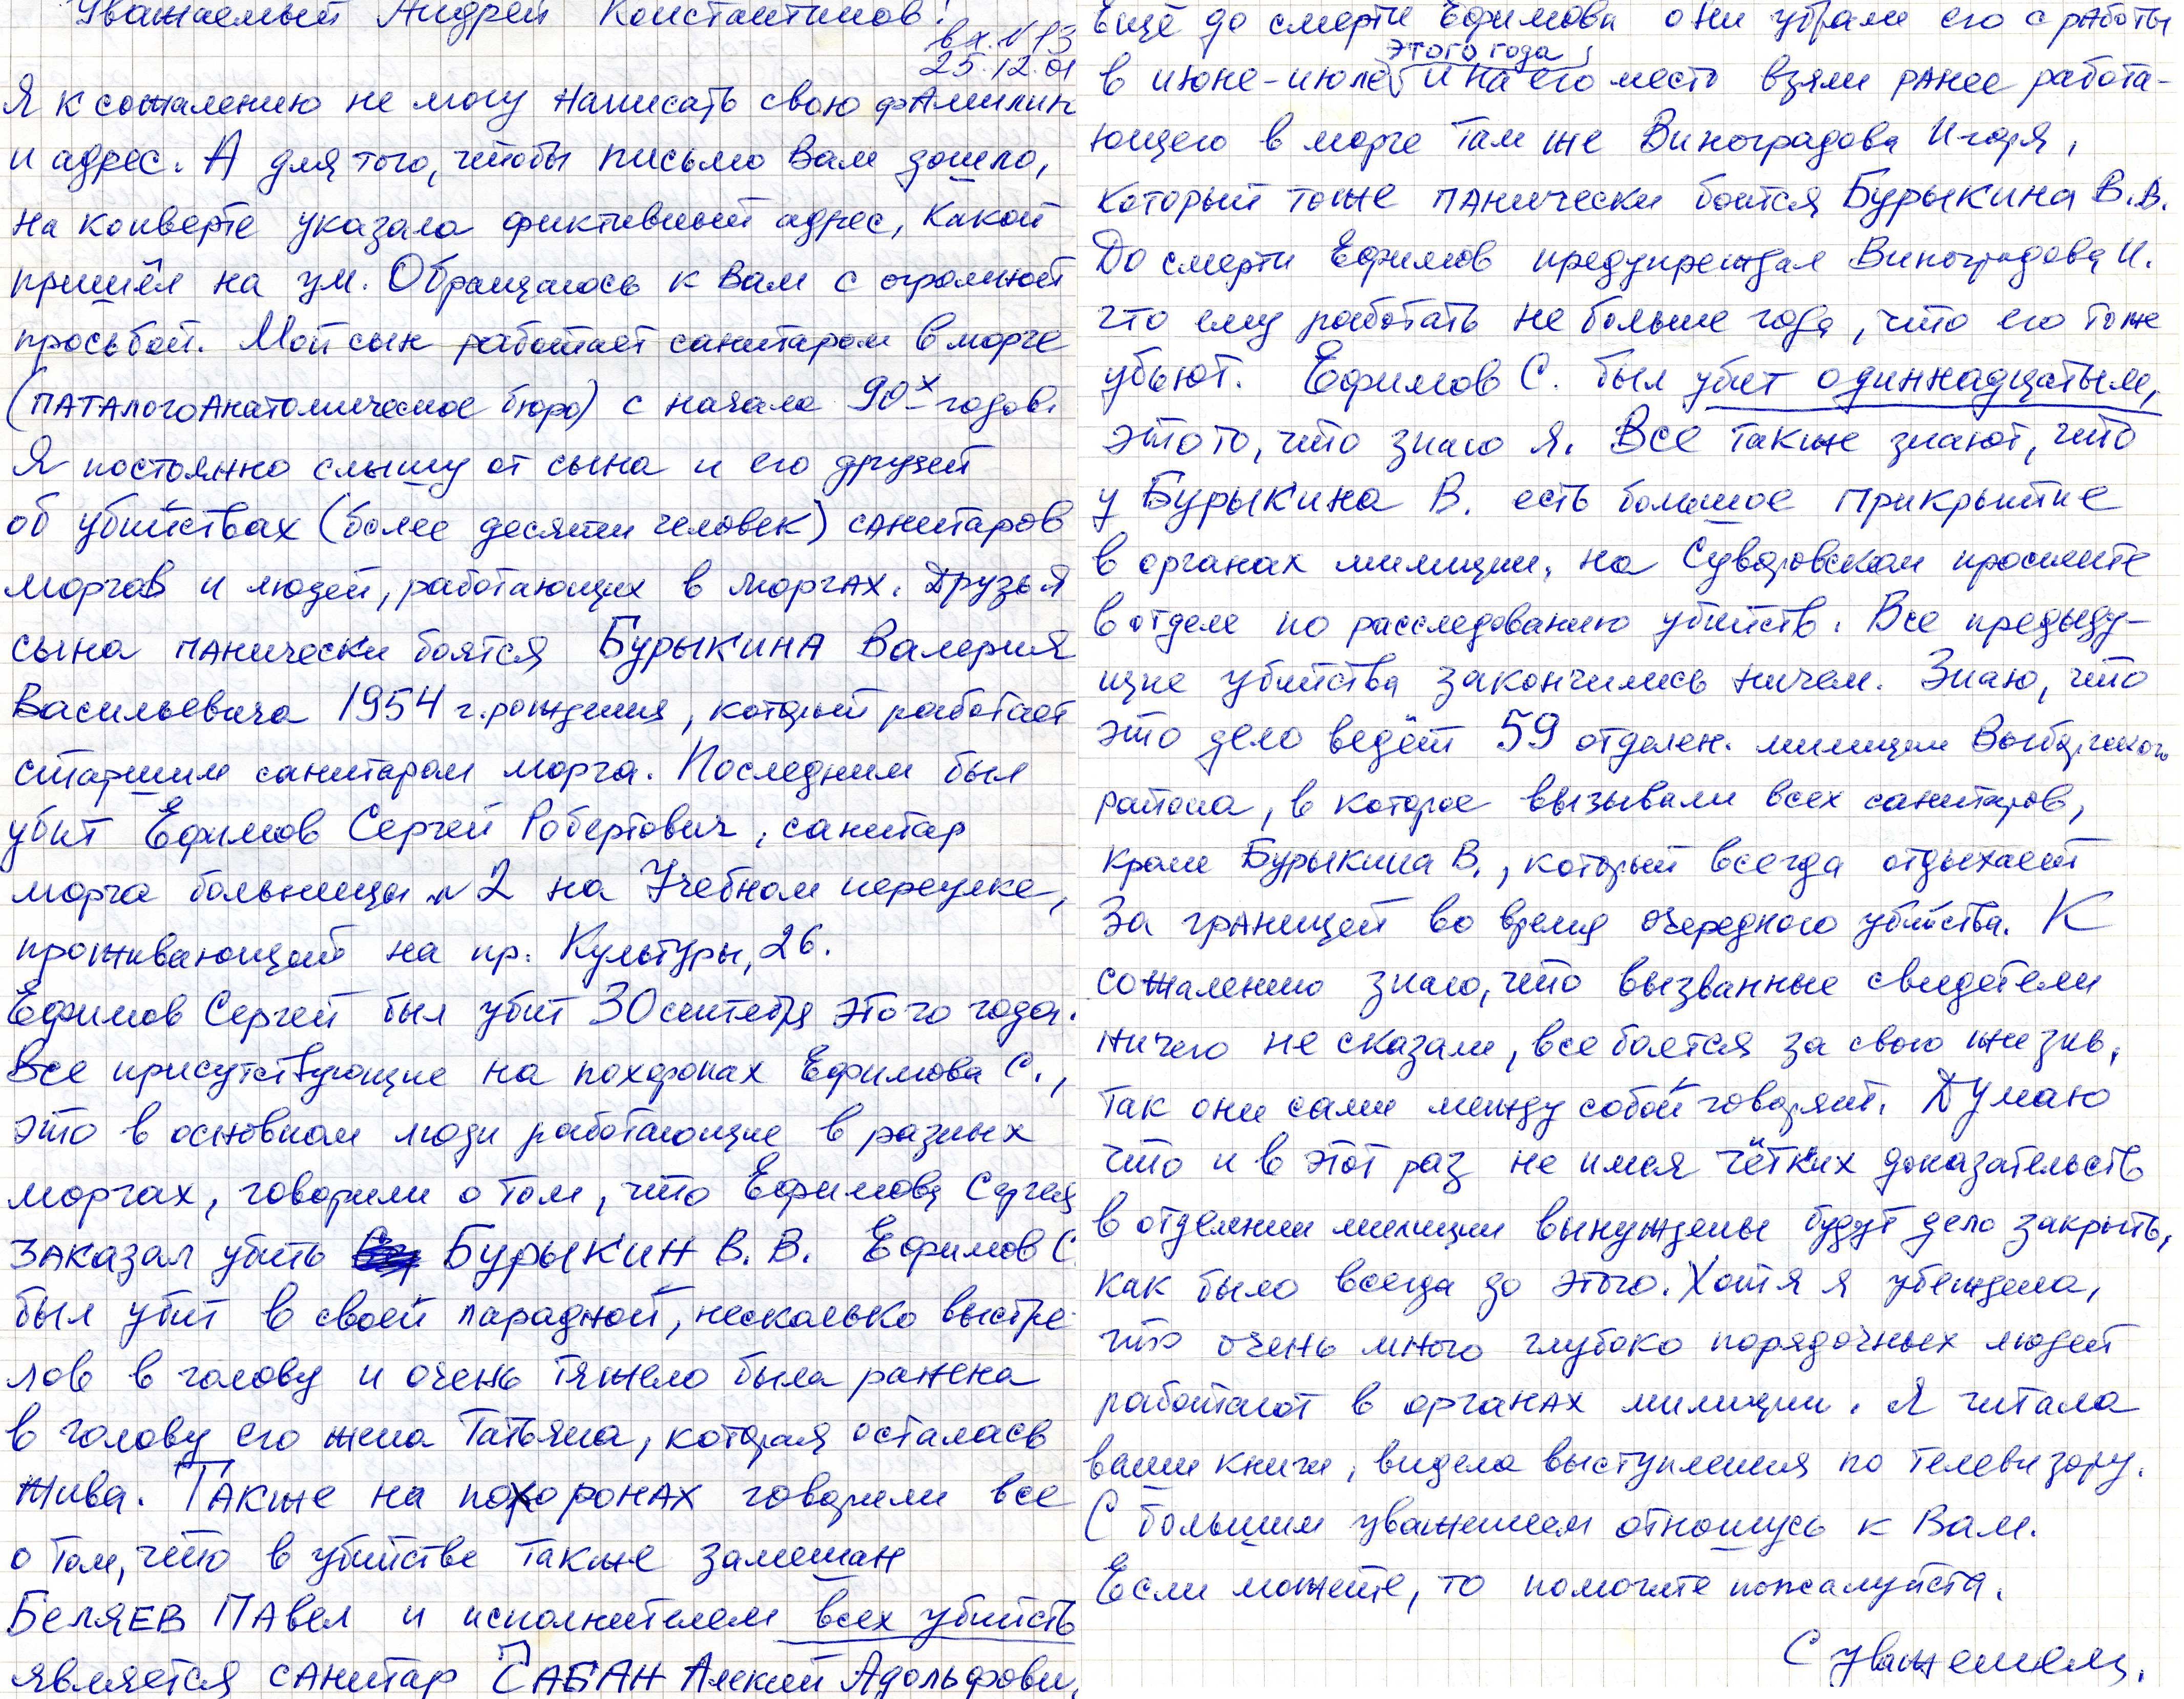 Уважаемый Андрей Константинов!
вх. N 93
25.12.01
Я к сожалению не могу написать свою фамилию
и адрес. А для того, чтобы письмо Вам дошло,
на конверте указала фиктивный адрес, какой
пришёл на ум. Обращаюсь к Вам с огромной
просьбой. Мой сын работает санитаром в морге
(паталогоанатомическое бюро) с начала 90х годов.
Я постоянно слышу от сына и его друзей
об убийствах (более десяти человек) санитаров
моргов и людей, работающих в моргах. Друзья
сына панически боятся Бурыкина Валерия
Васильевича 1954 г. рождения, который работает
старшим санитаром морга. Последним был
убит Ефимов Сергей Робертович, санитар
морга больницы N 2 на Учебном переулке,
проживающий на пр. Культуры, 26.
Ефимов Сергей был убит 30 сентября этого года.
Все присутствующие на похоронах Ефимова С.,
это в основном люди работающие в разных
моргах, говорили о том, что Ефимова Сергея
заказал убить Бурыкин В. В. Ефимов С.
был убит в своей парадной, несколько выстре-
лов в голову и очень тяжело была ранена
в голову его жена Татьяна, которая осталась
жива. Также на похоронах говорили все
о том, что в убийстве также замешан
Беляев Павел и исполнителем всех убийств
является санитар Сабан Алексей Адольфович,
Ещё до смерти Ефимова они убрали его с работы
в июне-июле этого года, и на его место взяли ранее работа-
ющего в морге там же Виноградова Игоря,
который тоже панически боится Бурыкина В.В.
До смерти Ефимов предупреждал Виноградова И.
что ему работать не больше года, что его тоже
убьют. Ефимов С. был убит одиннадцатым,
это то, что знаю я. Все также знают, что
у Бурыкина В. есть большое прикрытие
в органах милиции, на Суворовском проспекте
в отделе по расследованию убийств. Все предыду-
щие убийства закончились ничем. Знаю, что
это дело ведёт 59 отделен. милиции Выборгского
района, в которое вызывали всех санитаров,
кроме Бурыкина В., который всегда отдыхает
за границей во время очередного убийства. К
сожалению знаю, что вызванные свидетели
ничего не сказали, все боятся за свою жизнь,
так они сами между собой говорят. Думаю
что и в этот раз не имея чётких доказательств
в отделении милиции вынуждены будут дело закрыть,
как было всегда до этого. Хотя я убеждена,
что очень много глубоко порядочных людей
работают в органах милиции. Я читала
ваши книги, видела выступления по телевизору.
С большим уважением отношусь к Вам.
Если можете, то помогите пожалуйста.
С уважением.